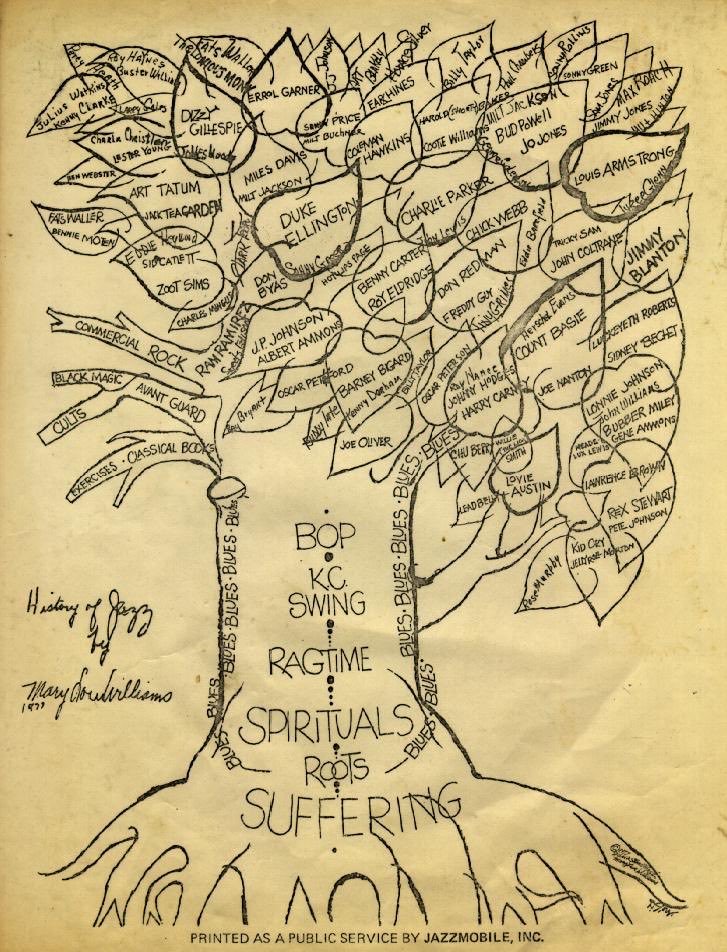 FATS WALLER
THELONIOUS MONK
ROY HAYNES
BUSTER WILLIAMS
Julius Watkins
KENNY CLARKE
Charlie Christian
LESTER YOUNG
BEN WEBSTER
DIZZY
GILLESPIE
James Moody
ERROL GARNER
SAMMY PRICE
MILT BUCHNER
EARL HINES
Horace Silver
Billy Taylor
Paul Chambers
Sonny Rollins
SONNY GREEN
Sam Jones
MAX ROACH
JIMMY JONES
MILT JACKSON
BUD POWELL
JO JONES
COLEMAN
HAWKINS
Cootie Williams
LOUIS ARMSTRONG
MILES DAVIS
MILT JACKSON
ART TATUM
JACK TEAGARDEN
FATS WALLER
BENNIE MOTEN
DUKE
ELLINGTON
Sonny Greer
CHARLIE PARKER
CHICK WEBB
TRICKY SAM
JOHN COLTRANE
JIMMY
BLANTON
SID CATLETT
ZOOT SIMS
CHARLES MINGUS
DON
BYAS
HOT LIPS PAGE
BENNY CARTER
ROY ELDRIDGE
DON REDMAN
FREDDY GUY
Herschel Evans
COUNT BASIE
LUCKEYETH ROBERTS
SIDNEY BECHET
RAM RAMIREZ
J.P. JOHNSON
ALBERT AMMONS
COMMERCIAL ROCK
BLACK MAGIC
AVANT GUARD
CULTS
EXERCISES · CLASSICAL BOOKS
Ray Bryant
OSCAR PETTFORD
BARNEY BIGARD
Kenny Dorham
BILLY TAYLOR
OSCAR PETERSON
Ray Nance
JOHNNY HODGES
HARRY CARNEY
JOE NANTON
LONNIE JOHNSON
John Williams
BUBBER MILEY
GENE AMMONS
JOE OLIVER
CHU BERRY
WILLIE
SMITH
LOVIE
AUSTIN
LEADBELLY
MEADE
LUX LEWIS
LAWRENCE BROWN
REX STEWART
PETE JOHNSON
KID ORY
JELLYROLL MORTON
Rose Murphy
BLUES · BLUES · BLUES · BLUES · BLUES
BLUES · BLUES · BLUES · BLUES · BLUES
BOP
K.C.
SWING
RAGTIME
SPIRITUALS
ROOTS
SUFFERING
BLUES
BLUES
History of Jazz
by
Mary Lou Williams
PRINTED AS A PUBLIC SERVICE BY JAZZMOBILE, INC.